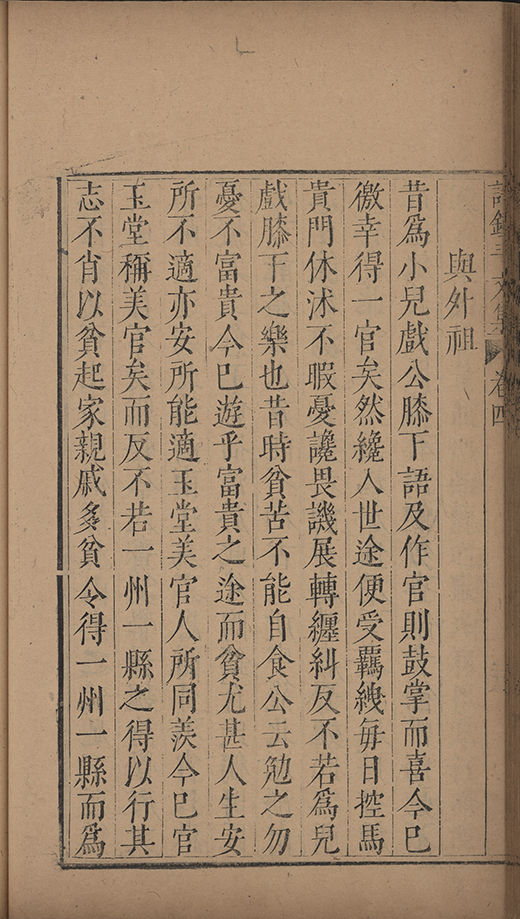 許鍾斗文集 卷四
與外祖
昔爲小兒戲公膝下語及作官則鼓掌而喜今已
徼幸得一官矣然纔入世途便受羈絏每日控馬
貴門休沐不暇憂讒畏譏展轉纏糾反不若爲兒
戲膝下之樂也昔時貧苦不能自食公云勉之勿
憂不富貴今已遊乎富貴之途而貧尤甚人生安
所不適亦安所能適玉堂美官人所同羨今已官
玉堂稱美官矣而反不若一州一縣之得以行其
志不肖以貧起家親戚多貧令得一州一縣而爲